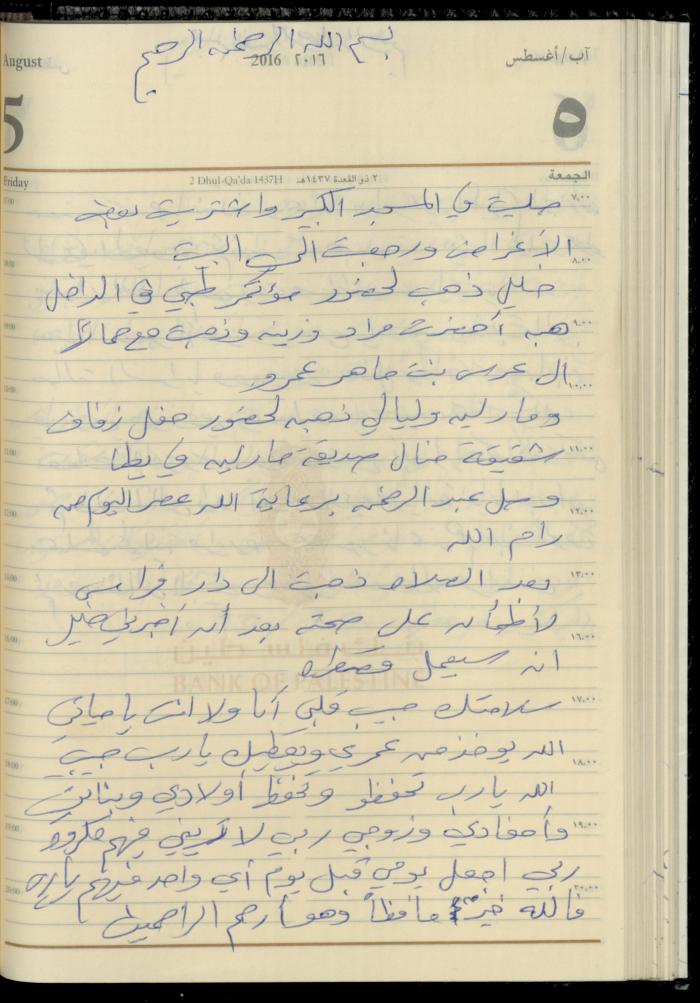 بسم الله الرحمن الرحيم
August
2016 ٢٠١٦
آب/أغسطس
5
٥
Friday
2 Dhul-Qa'da 1437H
٢ ذو القعدة ١٤٣٧هـ
الجمعة
صليت في المسجد الكبير واشتريت بعض
الأغراض ورجعت الى البيت
خليل ذهب لحضور مؤتمر طبي في الداخل
هبه أحضرت مراد وزينه وذهبت مع حماتها
ال عرس بنت ماهر عمرو
ومارلين وليالي ذهبه لحضور حفل زفاف
شقيقة منال صديقة مارلين في يطا
وصل عبد الرحمن برعاية الله عصر اليوم من
رام الله
بعد الصلاه ذهبت الى دار فراس
لأطمأن على صحته بعد أن أخبرني خليل
انه سيعمل قسطره
BANK OF PALESTINE
سلامتك حبيب قلبي أنا ولا انت يا حياتي
الله يوخذ من عمري ويعطيك يارب حبيبي
الله يارب تحفظو وتحفظ أولادي وبناتي
وأحفادي وزوجي ربي لا تريني فيهم مكروه
ربي اجعل يومي قبل يوم أي واحد فيهم يارب
فالله خير حافظاً وهو أرحم الراحمين